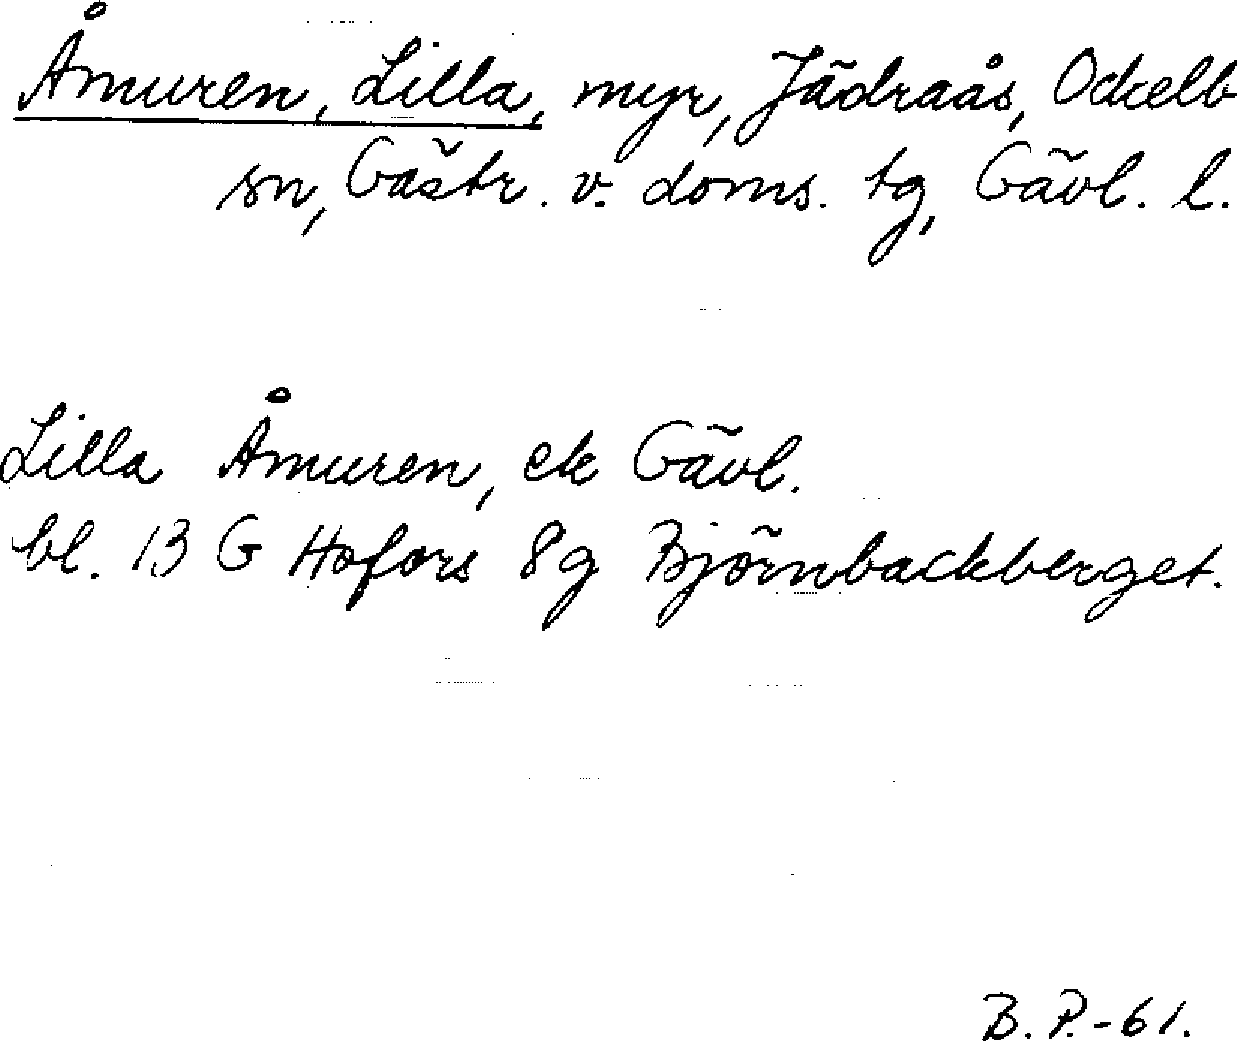 Åmuren, Lilla, myr, Jädraås, Ockelb
sn, Gästr. v. doms. tg, Gävl. l.
Lilla Åmuren, ek Gävl.
bl. 13 G Hofors 8g Björnbackberget.
B. P. -61.